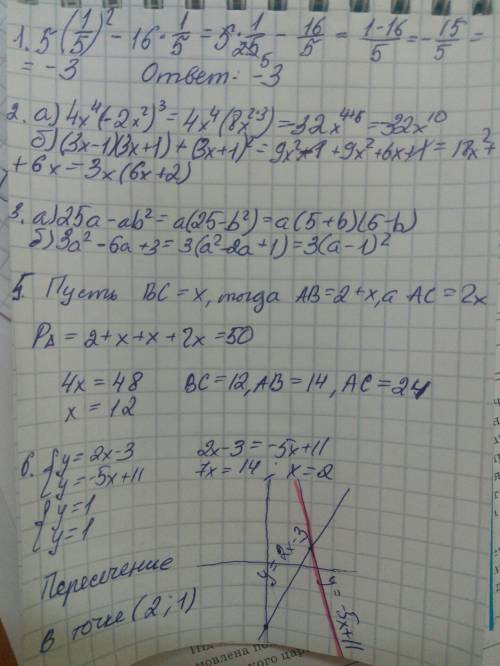 1. 5(1/5)² - 16·1/5 = 5·1/25 - 16/5 = (1-16)/5 = -15/5 =
= -3 Ответ: -3
2. а) 4x⁴(-2x²)³ = 4x⁴(8x²·³) = -32x⁴⁺⁶ = -32x¹⁰
б) (3x-1)(3x+1) + (3x+1)² = 9x²-1+9x²+6x+1 = 18x²+
+ 6x = 3x(6x+2)
3. а) 25a - ab² = a(25-b²) = a(5+b)(5-b)
б) 3a² - 6a + 3 = 3(a²-2a+1) = 3(a-1)²
5. Пусть BC = x, тогда AB = 2+x, а AC = 2x
P∆ = 2+x+x+2x = 50
4x = 48 BC = 12, AB = 14, AC = 24
x = 12
6. {y = 2x-3 2x-3 = -5x+11
{y = -5x+11 7x = 14 ; x = 2
{y = 1
{y = 1
Пересечение
в точке (2;1)
y = 2x-3
y = -5x+11